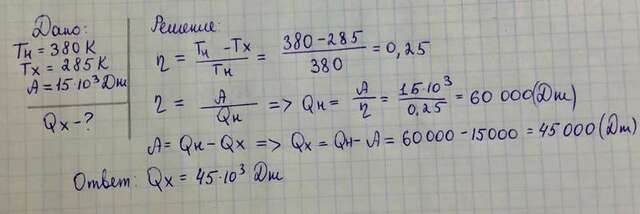 Дано:
Tн = 380 К
Tх = 285 К
A = 15·10³ Дж
Qх - ?
Решение:
η = (Tн - Tх)/Tн = (380 - 285)/380 = 0,25
η = A/Qн => Qн = A/η = 15·10³/0,25 = 60 000 (Дж)
A = Qн - Qх => Qх = Qн - A = 60000 - 15000 = 45000 (Дж)
Ответ: Qх = 45·10³ Дж